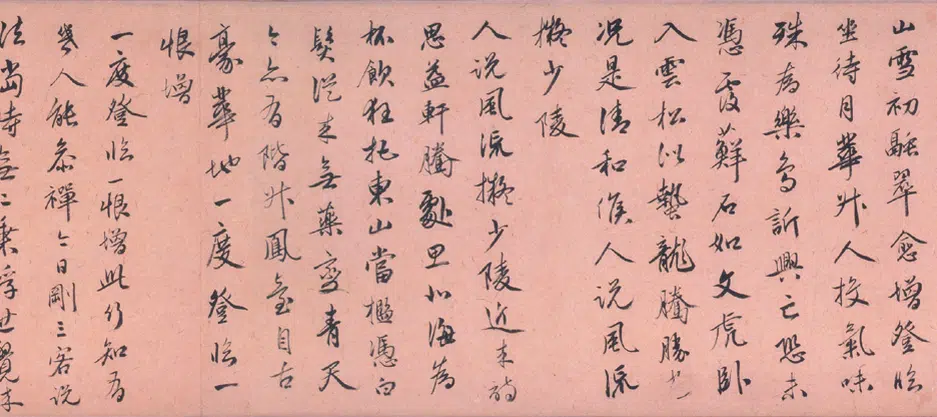 山雪初融翠愈增登臨
坐待月華升人投氣味
殊為樂鳥訴興亡恐未
憑霞蘚石如文虎臥
入雲松似蟄龍騰勝
況是清和候人說風流
擬少陵
人說風流擬少陵近來詩
思益軒騰思北海為
杯飲狂把東山當檻憑白
髮從來無藥變青天
今亦有階升鳳臺自古
豪華地一度登臨一
恨增
一度登臨一恨增此行知有
人能參禪今日剛三客說
法當時無二乘浮世覺來